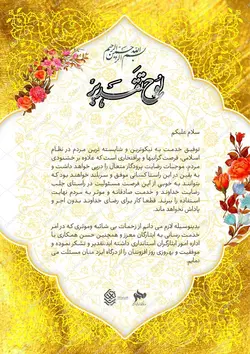 بسم الله الرحمن الرحیم
لوح تقدیر
سلام علیکم
توفیق خدمت به نیکوترین و شایسته ترین مردم در نظام
اسلامی، فرصت گرانبها و پرافتخاری است که علاوه بر خشنودی
مردم، موجبات رضایت پروردگار متعال را درپی خواهد داشت و
به یقین در این راستا کسانی موفق و سربلند خواهند بود که
بتوانند به خوبی از این فرصت مسئولیت در راستای جلب
رضایت خداوند و خدمت صادقانه و موثر به مردم نهایت
استفاده را ببرند. قطعا کار برای رضای خداوند بدون اجر و
پاداش نخواهد ماند.
بدینوسیله لازم می دانم از زحمات بی شائبه وموثری که در امر
خدمت رسانی به ایثارگران معزز و همچنین حسن همکاری با
اداره امور ایثارگران استانداری داشته اید،تقدیر و تشکر نموده و
موفقیت و بهروزی روز افزونتان را از درگاه ایزد منان مسئلت می
نمایم